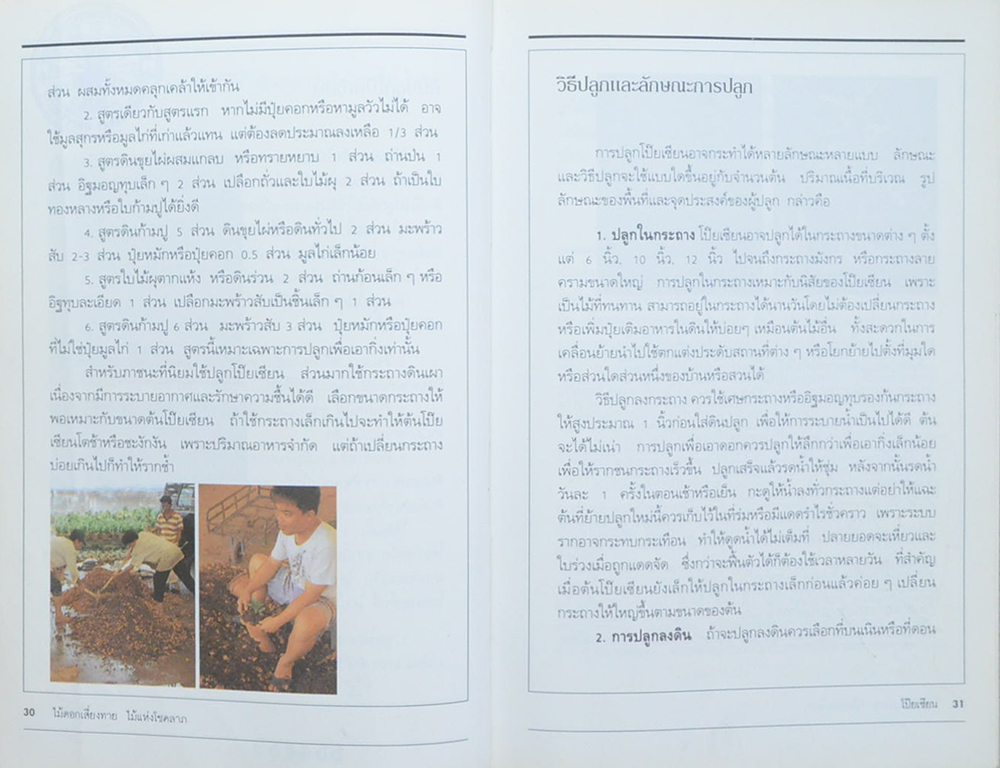 ส่วน ผสมทั้งหมดคลุกเคล้าให้เข้ากัน
2. สูตรเดียวกับสูตรแรก หากไม่มีปุ๋ยคอกหรือหามูลวัวไม่ได้ อาจ
ใช้มูลสุกรหรือมูลไก่ที่เก่าแล้วแทน แต่ต้องลดประมาณลงเหลือ 1/3 ส่วน
3. สูตรดินขุยไผ่ผสมแกลบ หรือทรายหยาบ 1 ส่วน ถ่านป่น 1
ส่วน อิฐมอญทุบเล็ก ๆ 2 ส่วน เปลือกถั่วและใบไม้ผุ 2 ส่วน ถ้าเป็นใบ
ทองหลางหรือใบก้ามปูได้ยิ่งดี
4. สูตรดินก้ามปู 5 ส่วน ดินขุยไผ่หรือดินทั่วไป 2 ส่วน มะพร้าว
สับ 2-3 ส่วน ปุ๋ยหมักหรือปุ๋ยคอก 0.5 ส่วน มูลไก่เล็กน้อย
5. สูตรใบไม้ผุตากแห้ง หรือดินร่วน 2 ส่วน ถ่านก้อนเล็ก ๆ หรือ
อิฐทุบละเอียด 1 ส่วน เปลือกมะพร้าวสับเป็นชิ้นเล็ก ๆ 1 ส่วน
6. สูตรดินก้ามปู 6 ส่วน มะพร้าวสับ 3 ส่วน ปุ๋ยหมักหรือปุ๋ยคอก
ที่ไม่ใช่ปุ๋ยมูลไก่ 1 ส่วน สูตรนี้เหมาะเฉพาะการปลูกเพื่อเอากิ่งเท่านั้น
สำหรับภาชนะที่นิยมใช้ปลูกโป๊ยเซียน ส่วนมากใช้กระถางดินเผา
เนื่องจากมีการระบายอากาศและรักษาความชื้นได้ดี เลือกขนาดกระถางให้
พอเหมาะกับขนาดต้นโป๊ยเซียน ถ้าใช้กระถางเล็กเกินไปจะทำให้ต้นโป๊ย
เซียนโตช้าหรือชะงักงัน เพราะปริมาณอาหารจำกัด แต่ถ้าเปลี่ยนกระถาง
บ่อยเกินไปก็ทำให้รากช้ำ
30 ไม้ดอกเสี่ยงทาย ไม้แห่งโชคลาภ
วิธีปลูกและลักษณะการปลูก
การปลูกโป๊ยเซียนอาจกระทำได้หลายลักษณะหลายแบบ ลักษณะ
และวิธีปลูกจะใช้แบบใดขึ้นอยู่กับจำนวนต้น ปริมาณเนื้อที่บริเวณ รูป
ลักษณะของพื้นที่และจุดประสงค์ของผู้ปลูก กล่าวคือ
1. ปลูกในกระถาง โป๊ยเซียนอาจปลูกได้ในกระถางขนาดต่าง ๆ ตั้ง
แต่ 6 นิ้ว, 10 นิ้ว, 12 นิ้ว ไปจนถึงกระถางมังกร หรือกระถางลาย
ครามขนาดใหญ่ การปลูกในกระถางเหมาะกับนิสัยของโป๊ยเซียน เพราะ
เป็นไม้ที่ทนทาน สามารถอยู่ในกระถางได้นานวันโดยไม่ต้องเปลี่ยนกระถาง
หรือเพิ่มปุ๋ยเติมอาหารในดินให้บ่อยๆ เหมือนต้นไม้อื่น ทั้งสะดวกในการ
เคลื่อนย้ายนำไปใช้ตกแต่งประดับสถานที่ต่าง ๆ หรือโยกย้ายไปตั้งที่มุมใด
หรือส่วนใดส่วนหนึ่งของบ้านหรือสวนได้
วิธีปลูกลงกระถาง ควรใช้เศษกระถางหรืออิฐมอญทุบรองก้นกระถาง
ให้สูงประมาณ 1 นิ้วก่อนใส่ดินปลูก เพื่อให้การระบายน้ำเป็นไปได้ดี ต้น
จะได้ไม่เน่า การปลูกเพื่อเอาดอกควรปลูกให้ลึกกว่าเพื่อเอากิ่งเล็กน้อย
เพื่อให้รากชนกระถางเร็วขึ้น ปลูกเสร็จแล้วรดน้ำให้ชุ่ม หลังจากนั้นรดน้ำ
วันละ 1 ครั้งในตอนเช้าหรือเย็น กะดูให้น้ำลงทั่วกระถางแต่อย่าให้แฉะ
ต้นที่ย้ายปลูกใหม่นี้ควรเก็บไว้ในที่ร่มหรือมีแดดรำไรชั่วคราว เพราะระบบ
รากอาจกระทบกระเทือน ทำให้ดูดน้ำได้ไม่เต็มที่ ปลายยอดจะเหี่ยวและ
ใบร่วงเมื่อถูกแดดจัด ซึ่งกว่าจะฟื้นตัวได้ก็ต้องใช้เวลาหลายวัน ที่สำคัญ
เมื่อต้นโป๊ยเซียนยังเล็กให้ปลูกในกระถางเล็กก่อนแล้วค่อย ๆ เปลี่ยน
กระถางให้ใหญ่ขึ้นตามขนาดของต้น
2. การปลูกลงดิน ถ้าจะปลูกลงดินควรเลือกที่บนเนินหรือที่ดอน
โป๊ยเซียน 31